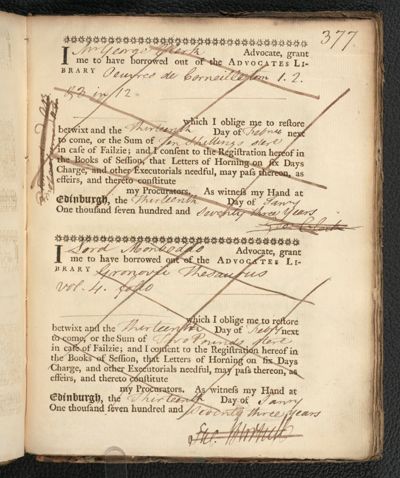 377
I Mr George Clerk Advocate, grant
me to have borrowed out of the ADVOCATES LI-
BRARY Oeuvres de Corneille tom 1. 2.
in 12
which I oblige me to restore
betwixt and the thirteenth Day of next
to come, or the Sum of Ten Shillings sterl
in case of Failzie; and I consent to the Registration hereof in
the Books of Session, that Letters of Horning on six Days
Charge, and other Executorials needful, may pass thereon, as
effeirs, and thereto constitute
my Procurators. As witness my Hand at
Edinburgh, the Thirteenth Day of Janry
One thousand seven hundred and Seventy three Years
Geo. Clerk
I Lord Monboddo Advocate, grant
me to have borrowed out of the ADVOCATES LI-
BRARY Gronovii Thesaurus
vol. 4. folio
which I oblige me to restore
betwixt and the thirteenth Day of next
to come, or the Sum of Two Pounds sterl
in case of Failzie; and I consent to the Registration hereof in
the Books of Session, that Letters of Horning on six Days
Charge, and other Executorials needful, may pass thereon, as
effeirs, and thereto constitute
my Procurators. As witness my Hand at
Edinburgh, the Thirteenth Day of Janry
One thousand seven hundred and Seventy three years